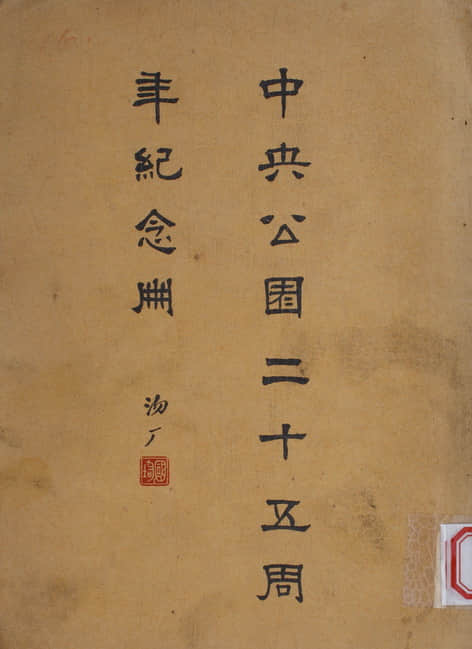 中央公園二十五周
年紀念冊